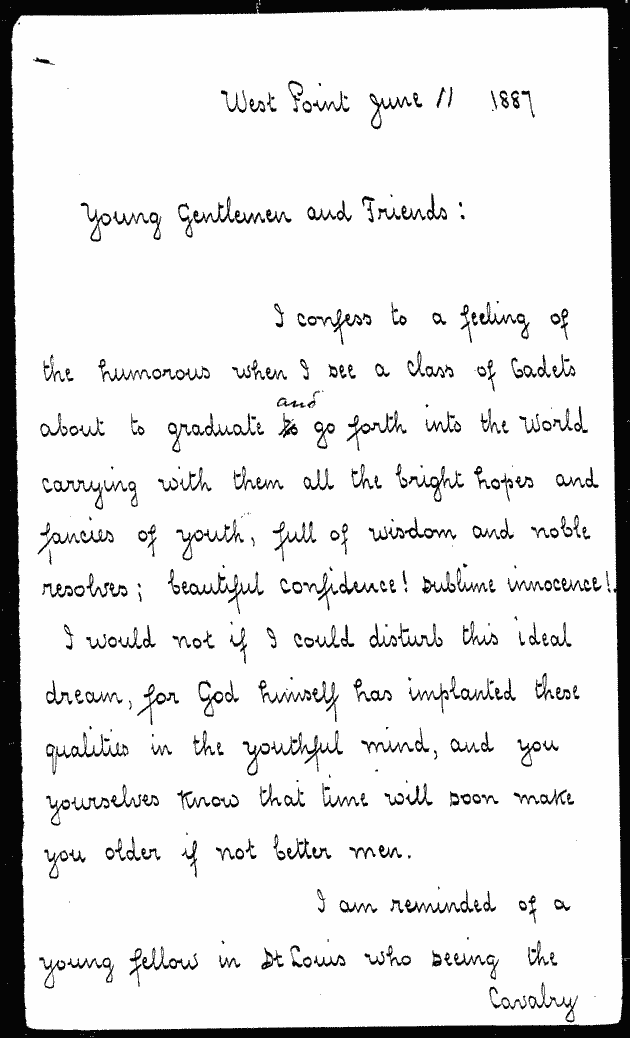 West Point June 11 1887
Young Gentlemen and Friends:
I confess to a feeling of
the humorous when I see a class of Cadets
about to graduate and go forth into the World
carrying with them all the bright hopes and
fancies of youth, full of wisdom and noble
resolves; beautiful confidence! sublime innocence!.
I would not if I could disturb this ideal
dream, for God himself has implanted these
qualities in the youthful mind, and you
yourselves know that time will soon make
you older if not better men.
I am reminded of a
young fellow in St Louis who seeing the
Cavalry